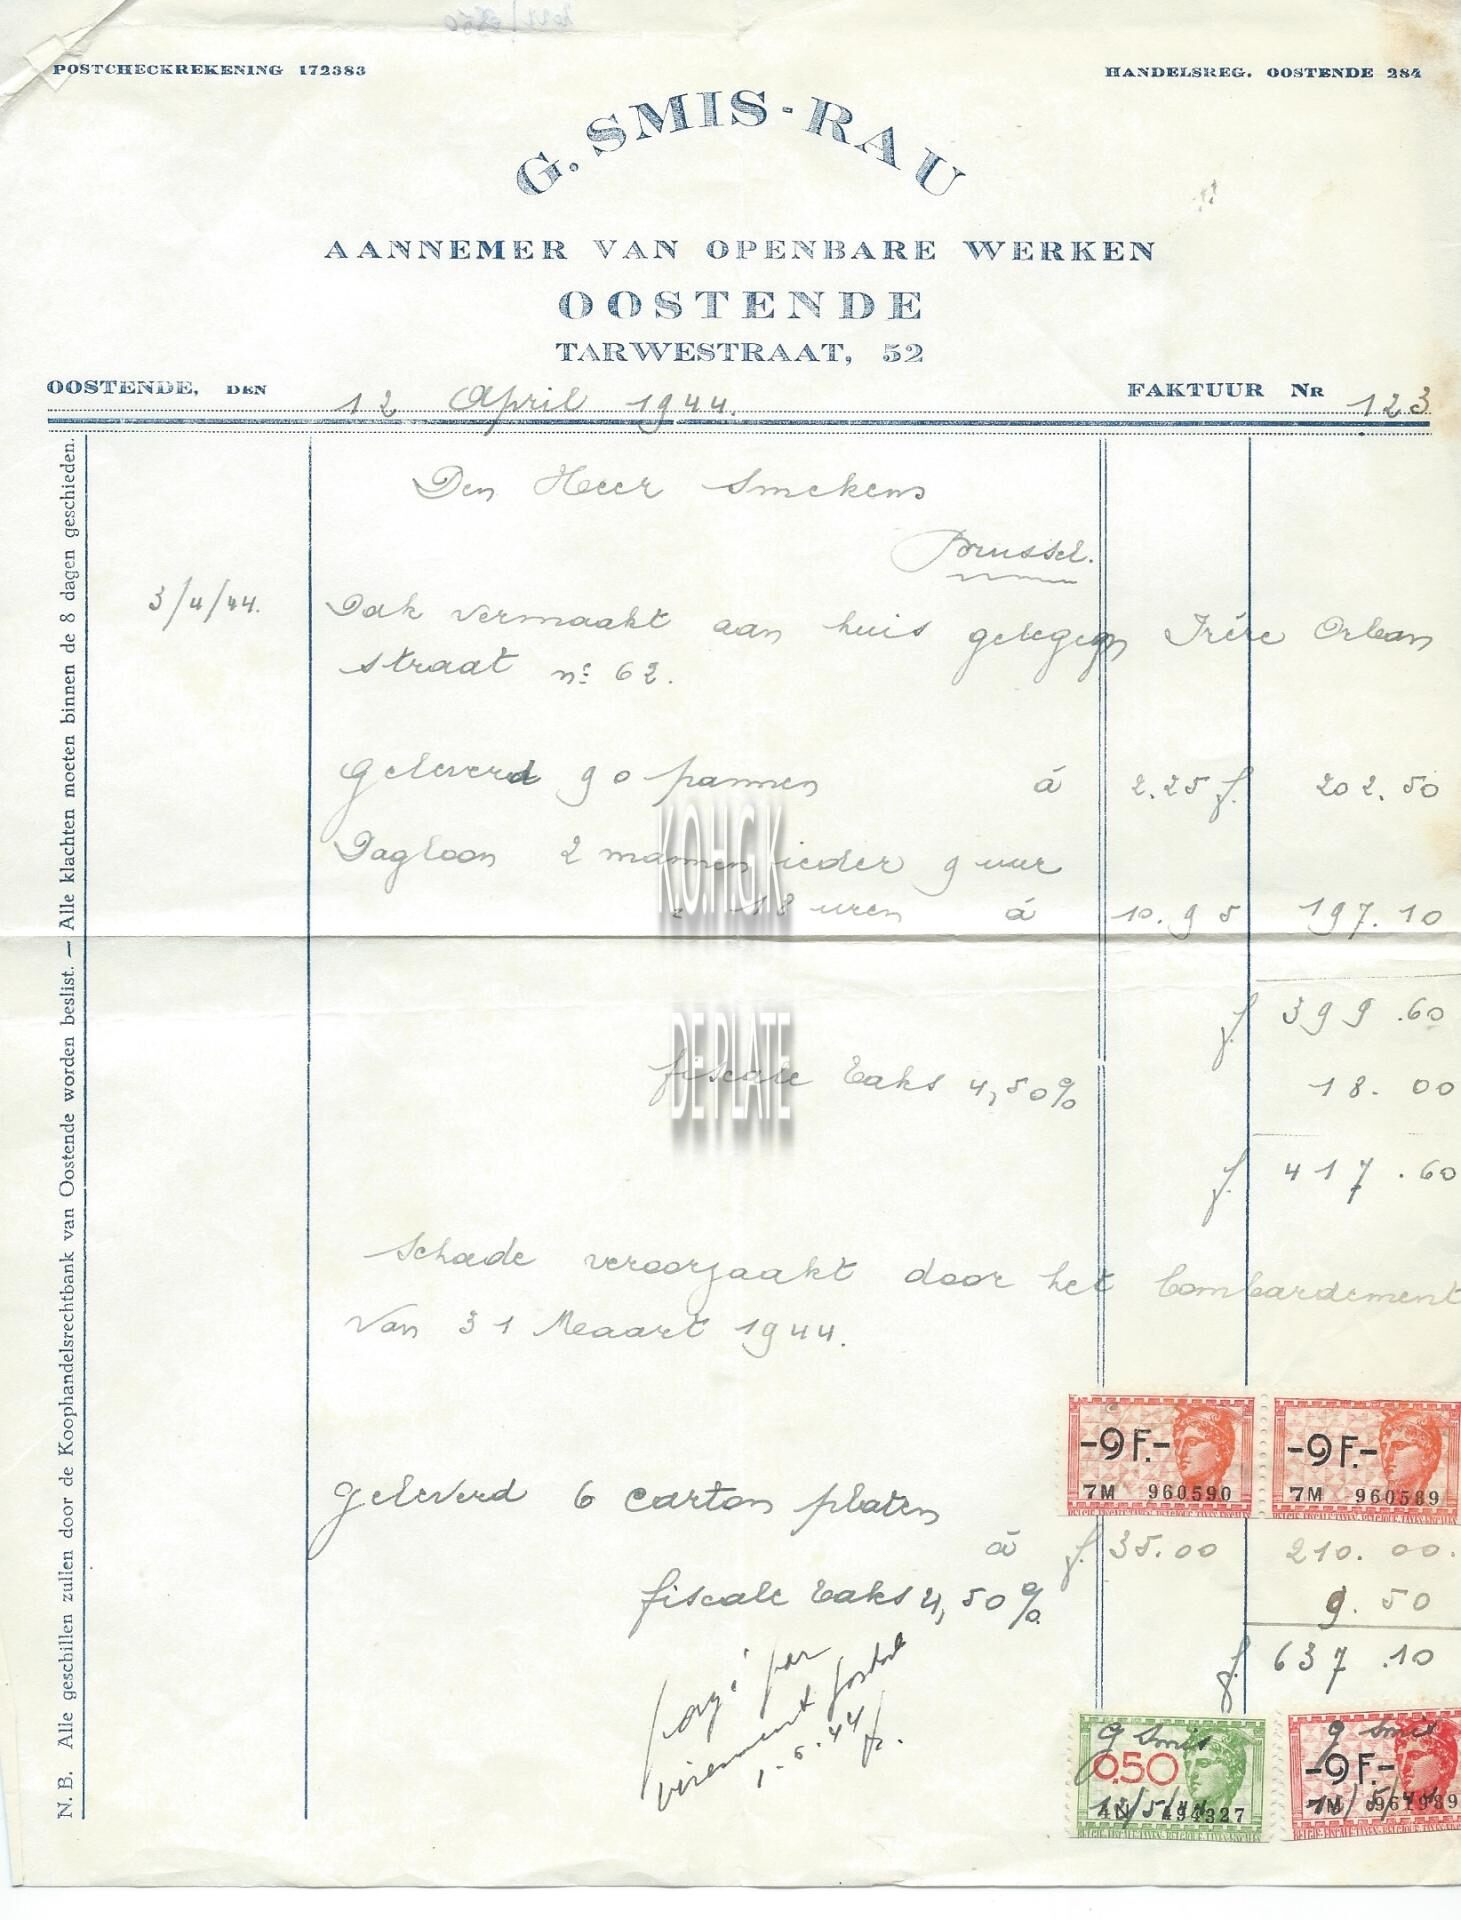 POSTCHECKREKENING 172383
HANDELSREG. OOSTENDE 284
G. SMIS-RAU
AANNEMER VAN OPENBARE WERKEN
OOSTENDE
TARWESTRAAT, 52
OOSTENDE, DEN 12 April 1944.
FAKTUUR Nr 123
Den Heer Smekens
Brussel.
3/4/44. Dak vermaakt aan huis gelegen Frére Orban
straat n: 62.
Geleverd 90 pannen á 2.25 f. 202.50
Dagloon 2 mannen ieder 9 uur
18 uren á 10.95 197.10
f 399.60
fiscale taks 4,50% 18.00
f. 417.60
Schade veroorzaakt door het bombardement
Van 31 Maart 1944.
-9F.-
7M 960590
-9F.-
7M 960589
Geleverd 6 carton platen
á f. 35.00 210.00.
fiscale taks 4,50% 9.50
f. 637.10
payé par
virement postal
G Smis
0.50
4N 494327
G Smis
-9F.-
N.B. Alle geschillen zullen door de Koophandelsrechtbank van Oostende worden beslist. — Alle klachten moeten binnen de 8 dagen geschieden.
K.O.H.G.K
DE PLATE